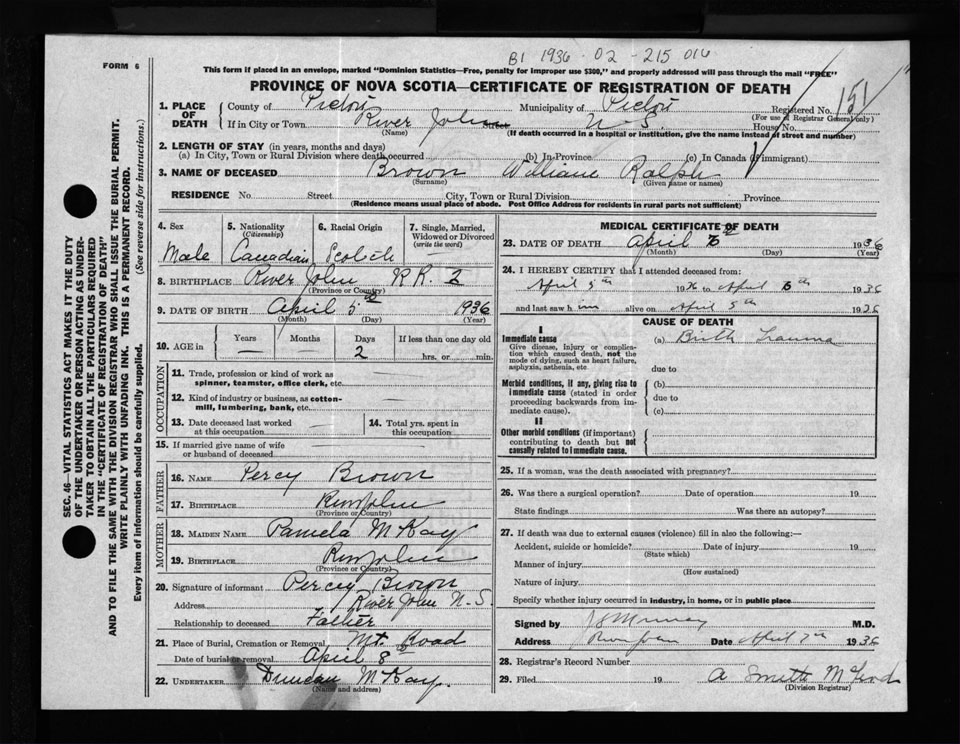 B1 1936-02-215016
FORM 6
This form if placed in an envelope, marked "Dominion Statistics—Free, penalty for improper use $300," and properly addressed will pass through the mail "FREE"
PROVINCE OF NOVA SCOTIA—CERTIFICATE OF REGISTRATION OF DEATH
1. PLACE OF DEATH
County of Pictou Municipality of Pictou Registered No. 151
(For use of Registrar General only)
If in City or Town River John Street N S. House No.
(Name) (If death occurred in a hospital or institution, give the name instead of street and number)
2. LENGTH OF STAY (in years, months and days)
(a) In City, Town or Rural Division where death occurred (b) In Province (c) In Canada (if immigrant)
3. NAME OF DECEASED Brown William Ralph
(Surname) (Given name or names)
RESIDENCE No. Street City, Town or Rural Division Province
(Residence means usual place of abode. Post Office Address for residents in rural parts not sufficient)
4. Sex Male
5. Nationality (Citizenship) Canadian
6. Racial Origin Scotch
7. Single, Married, Widowed or Divorced (write the word) —
8. BIRTHPLACE River John R R. 2
(Province or Country)
9. DATE OF BIRTH April 5th 1936
(Month) (Day) (Year)
10. AGE in Years — Months — Days 2 If less than one day old hrs. or min.
OCCUPATION
11. Trade, profession or kind of work as spinner, teamster, office clerk, etc.
12. Kind of industry or business, as cotton-mill, lumbering, bank, etc.
13. Date deceased last worked at this occupation
14. Total yrs. spent in this occupation
15. If married give name of wife or husband of deceased
FATHER
16. NAME Percy Brown
17. BIRTHPLACE
(Province or Country)
MOTHER
18. MAIDEN NAME Pamela McKay
19. BIRTHPLACE
(Province or Country)
20. Signature of informant Percy Brown
Address River John N-S
Relationship to deceased Father
21. Place of Burial, Cremation or Removal Mt. Road
Date of burial or removal April 8
22. UNDERTAKER Duncan McKay.
(Name and address)
MEDICAL CERTIFICATE OF DEATH
23. DATE OF DEATH April 6th 1936
(Month) (Day) (Year)
24. I HEREBY CERTIFY that I attended deceased from:
April 5th 1936 to April 6th 1936
and last saw him alive on April 5th 1936
CAUSE OF DEATH
I
Immediate cause
Give disease, injury or complication which caused death, not the mode of dying, such as heart failure, asphyxia, asthenia, etc
(a) Birth Trauma
due to
Morbid conditions, if any, giving rise to immediate cause (stated in order proceeding backwards from immediate cause).
(b)
due to
(c)
II
Other morbid conditions (if important) contributing to death but not causally related to immediate cause.
25. If a woman, was the death associated with pregnancy?
26. Was there a surgical operation? Date of operation 19
State findings Was there an autopsy?
27. If death was due to external causes (violence) fill in also the following:—
Accident, suicide or homicide? Date of injury 19
(State which)
Manner of injury
(How sustained)
Nature of injury
Specify whether injury occurred in industry, in home, or in public place
Signed by M.D.
Address River John Date April 7th 1936
28. Registrar's Record Number
29. Filed 19
(Division Registrar)
SEC. 46—VITAL STATISTICS ACT MAKES IT THE DUTY
OF THE UNDERTAKER OR PERSON ACTING AS UNDER-
TAKER TO OBTAIN ALL THE PARTICULARS REQUIRED
IN THE "CERTIFICATE OF REGISTRATION OF DEATH"
AND TO FILE THE SAME WITH THE DIVISION REGISTRAR WHO SHALL ISSUE THE BURIAL PERMIT.
WRITE PLAINLY WITH UNFADING INK. THIS IS A PERMANENT RECORD.
Every item of information should be carefully supplied. (See reverse side for instructions.)